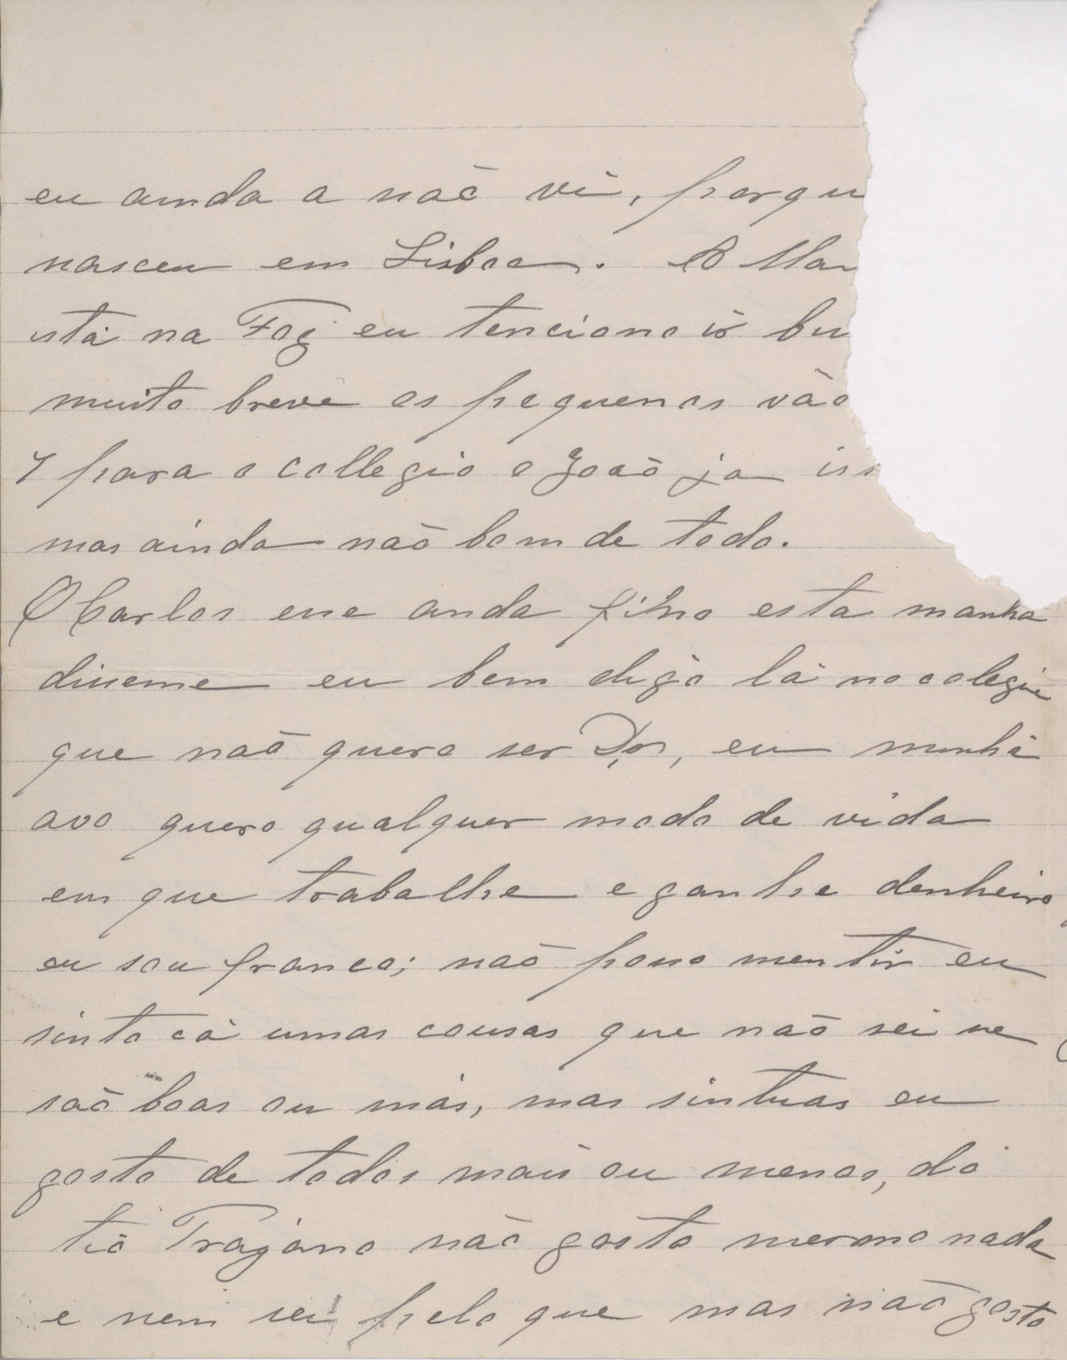 eu ainda a não vi, porqu
nasceu em Lisboa. A Mar
está na Foz eu tenciono ir bu
muito breve os pequenos vão
para o collegio o João ja
mas ainda não bom de todo.
O Carlos esse anda fino esta manha
disseme eu bem digo lá no colegio
que não quero ser Dor, eu minha
avo quero qualquer modo de vida
em que trabalhe e ganhe denheiro
eu sou franco; não posso mentir eu
sinto cá umas cousas que não sei se
são boas ou más, mas sintuas eu
gosto de todos mais ou menos, do
tio Trajano não gosto mesmo nada
e nem sei pelo que mas não gosto